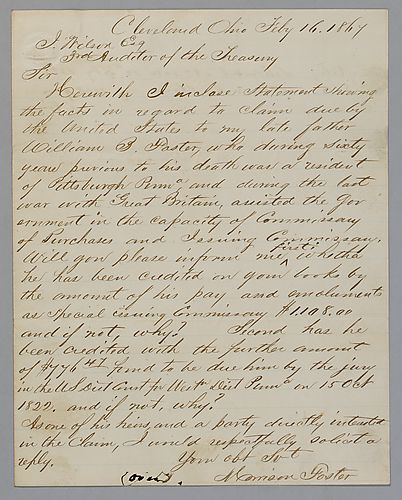 Cleveland Ohio Feby 16. 1867
J. Wilson Esq
3rd Auditor of the Treasury
Sir
Herewith I inclose Statement showing
the facts in regard to claim due by
the United States to my late father
William B. Foster, who during sixty
years previous to his death was a resident
of Pittsburgh Penna and during the last
war with Great Britain, assisted the Gov
ernment in the capacity of Commissary
of Purchases and Issuing Commissary.
Will you please inform me, first: whether
he has been credited on your books by
the amount of his pay and emoluments
as Special issuing Commissary $1108.00
and if not, why? Second has he
been credited with the further amount
of $776 45 found to be due him by the jury
in the U.S. Dist Court for Westn Dist Penna on 15 Oct
1822. and if not, why?
As one of his heirs, and a party directly interested
in the Claim, I would respectfully solicit a
reply. Your obt Svt
(over). Morrison Foster